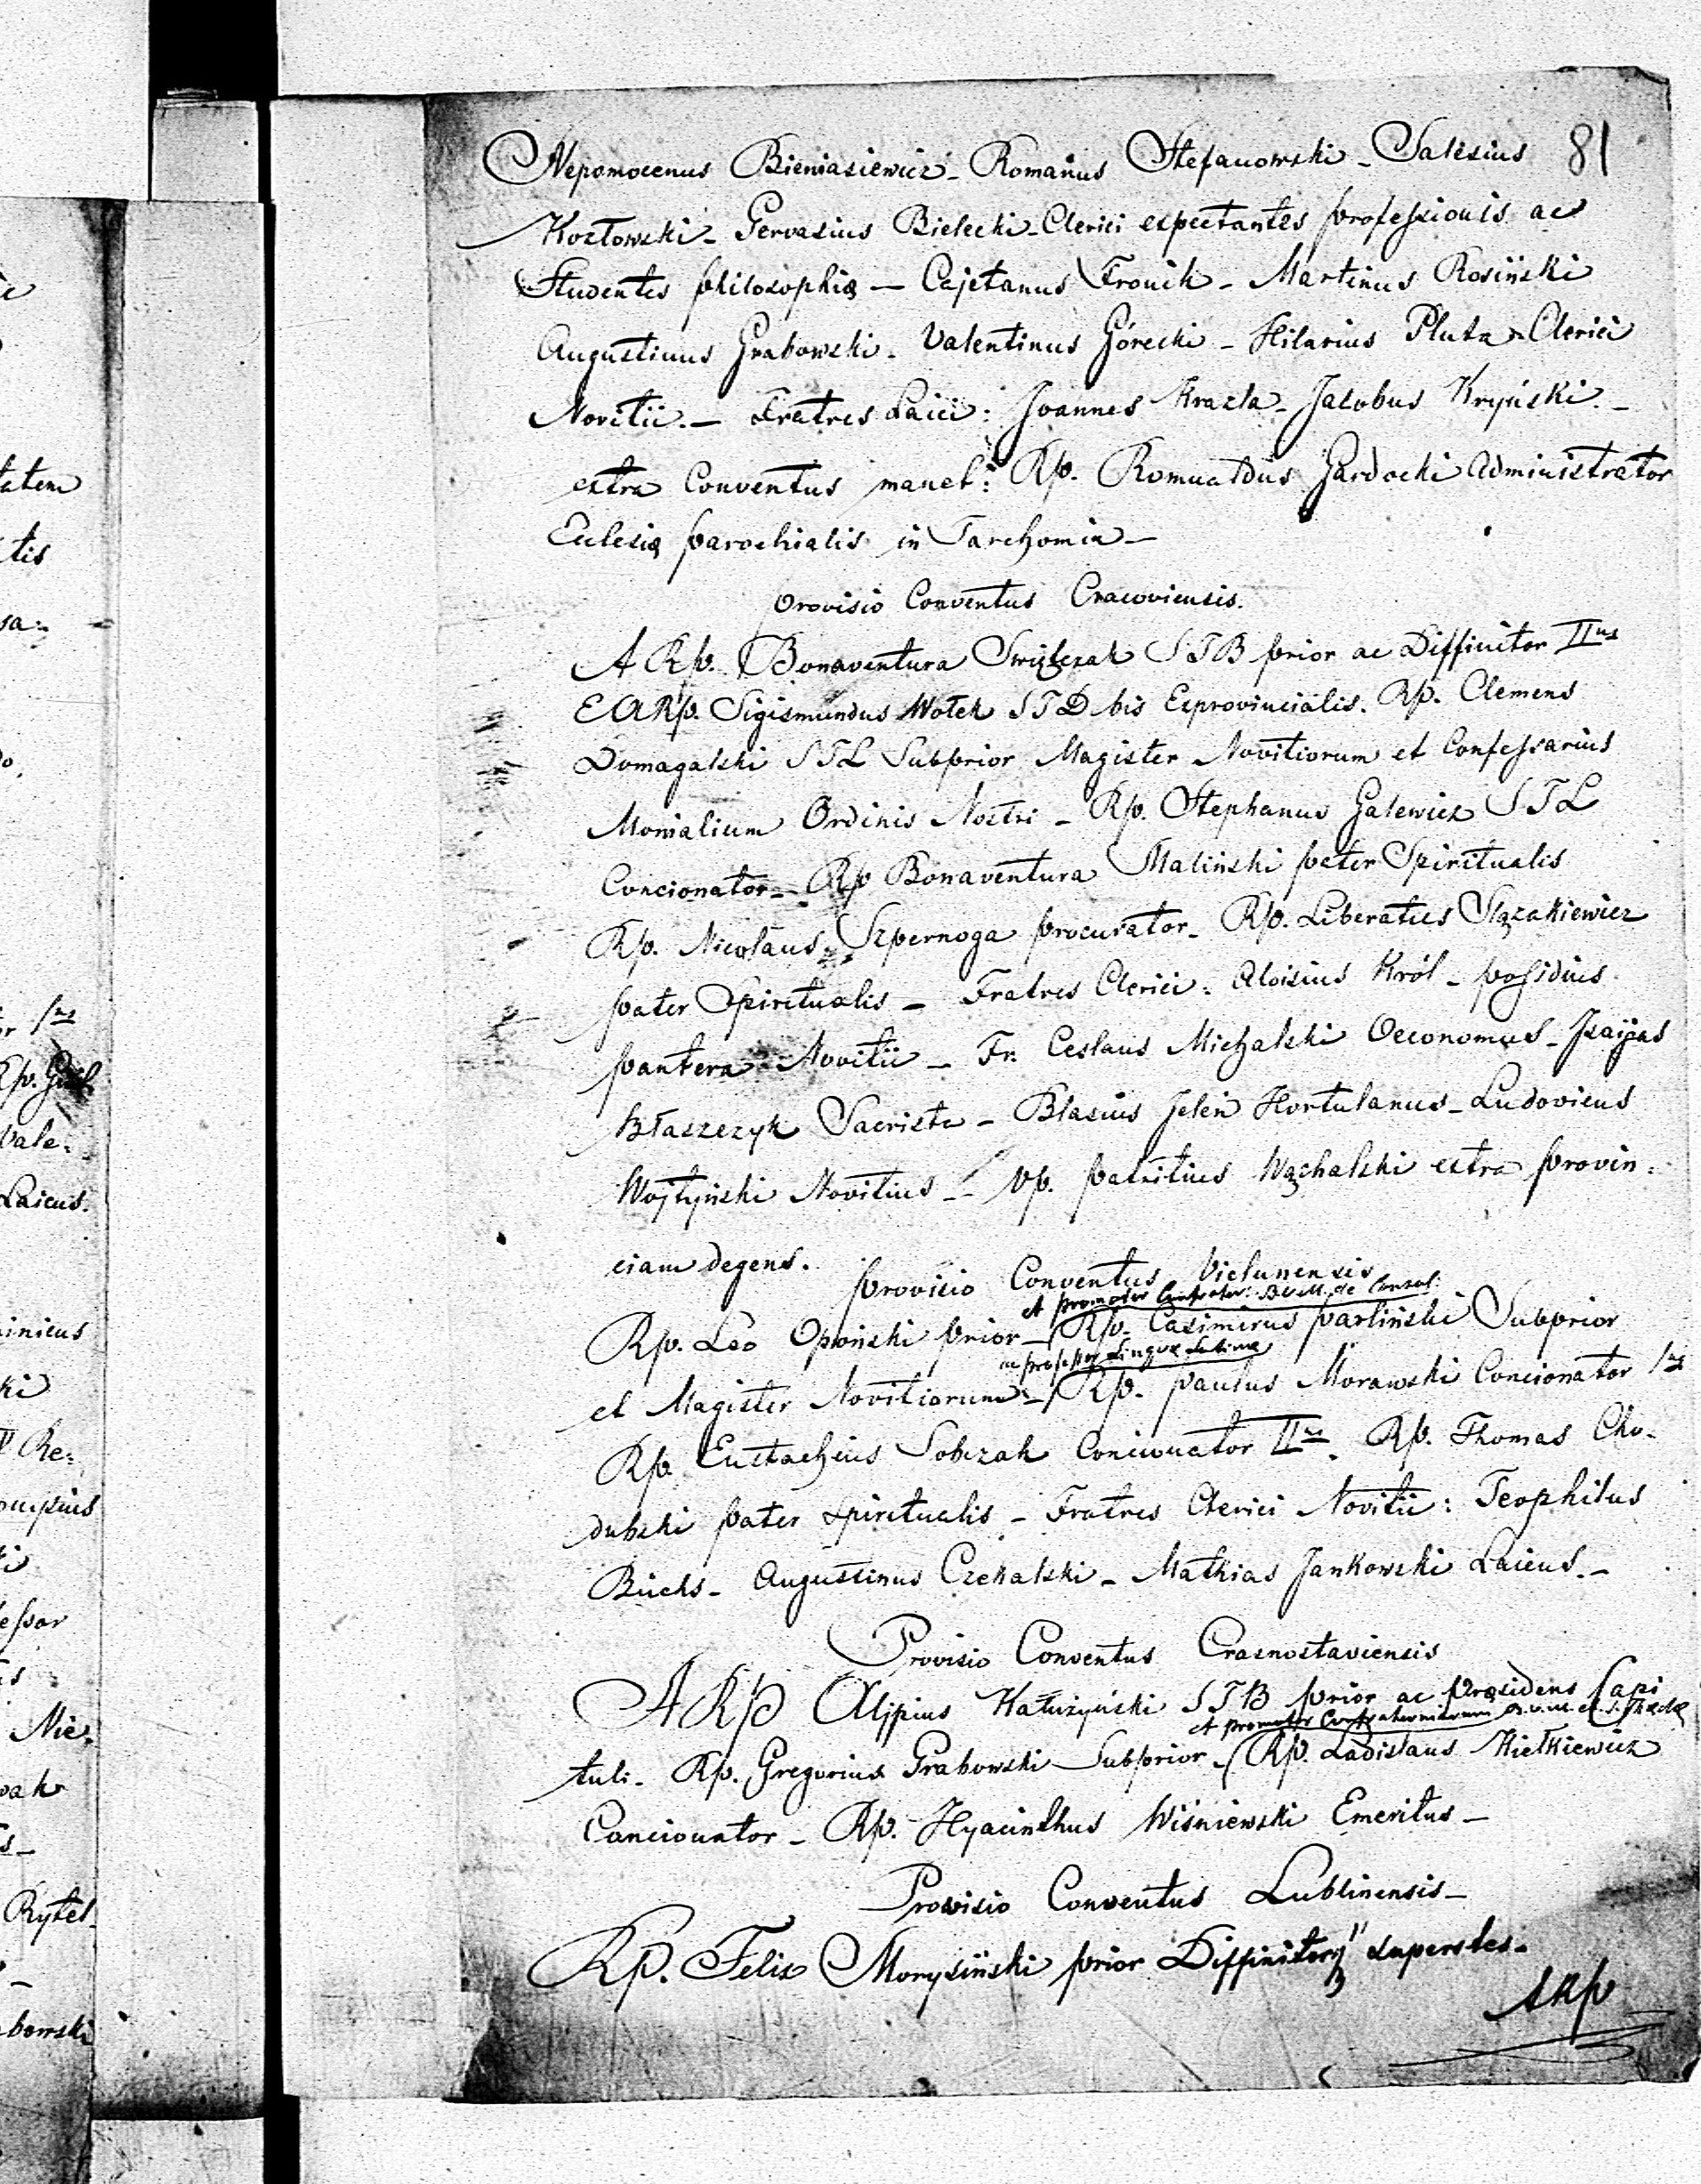 81
Nepomocenus Bieniasiewicz - Romanus Stefanowski - Salesius
Kozłowski - Gervasius Bielecki - Clerici expectantes professionis ac
Studentes philosophiæ — Cajetanus Fronik - Martinus Rosiński
Augustinus Grabowski - Valentinus Górecki - Hilarius Pluta - Clerici
Novitii. — Fratres Laici: Joannes - Jacobus Kryński. -
extra Conventus manet: Rp. Romualdus Gardocki Administrator
Eclesiæ parochialis in Tarchomin —
Provisio Conventus Cracoviensis.
A Rp. Bonaventura STB prior ac Diffinitor IIus
EARp. Sigismundus Wołek STD bis Exprovincialis. Rp. Clemens
Domagalski STL Subprior Magister Novitiorum et Confessarius
Monialium Ordinis Nostri - Rp. Stephanus Galewicz STL
Concionator - Rp Bonaventura Maliński pater Spiritualis
Rp. Nicolaus Szpernoga procurator - Rp. Liberatus Slązakiewicz
pater Spiritualis - Fratres Clerici: Aloisius Król - possidius
pantera Novitii - Fr. Ceslaus Michalski Oeconomus - Jsaijas
Błaszczyk Sacrista - Blasius Jeleń Hortulanus - Ludovicus
Wojtyński Novitius - Vp. patritius Wąchalski extra provin:
ciam degens.
provisio Conventus Vielunensis
et promotor Confrater: B.V.M. de Consol:
Rp. Leo Opoński prior - Rp. Casimirus parliński Subprior
ac professor Linguæ Latinæ
et Magister Novitiorum - Rp. paulus Morawski Concionator Ius
Rp. Eustachius Sobczak Concionator IIus. Rp. Thomas Cho-
dubski pater spiritualis - Fratres Clerici Novitii: Teophilus
Büchs - Augustinus Czekalski - Mathias Jankowski Laicus. -
Provisio Conventus Crasnostaviensis
ARp Alipius Kałużyński STB prior ac Præsidens Capi
et promotor Confraternitatum B.V.M. et S. Theclæ
tuli - Rp. Gregorius Grabowski Subprior - Rp. Ladislaus Kiełkiewicz
Concionator - Rp. Hyacinthus Wiśniewski Emeritus —
Provisio Conventus Lublinensis —
Rp. Felix Morysiński prior Diffinitorij superstes.
ARp